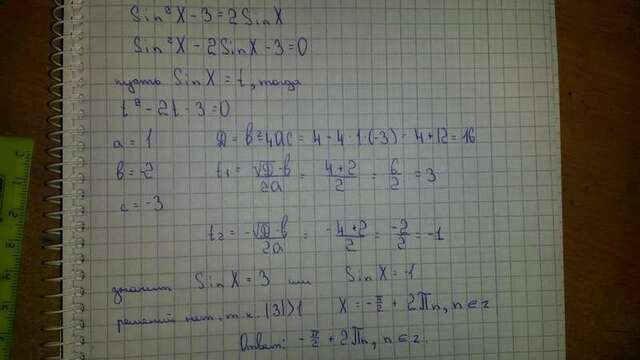 Sin²X - 3 = 2SinX
Sin²X - 2SinX - 3 = 0
пусть SinX = t, тогда
t² - 2t - 3 = 0
a = 1 D = b²-4ac = 4 - 4·1·(-3) = 4+12 = 16
b = -2 t₁ = (√D - b)/2a = (4+2)/2 = 6/2 = 3
c = -3
t₂ = (-√D - b)/2a = (-4+2)/2 = -2/2 = -1
значит SinX = 3 или SinX = -1
решений нет, т.к. |3|>1 X = -π/2 + 2Πn, n∈z
Ответ: -π/2 + 2Πn, n∈z.